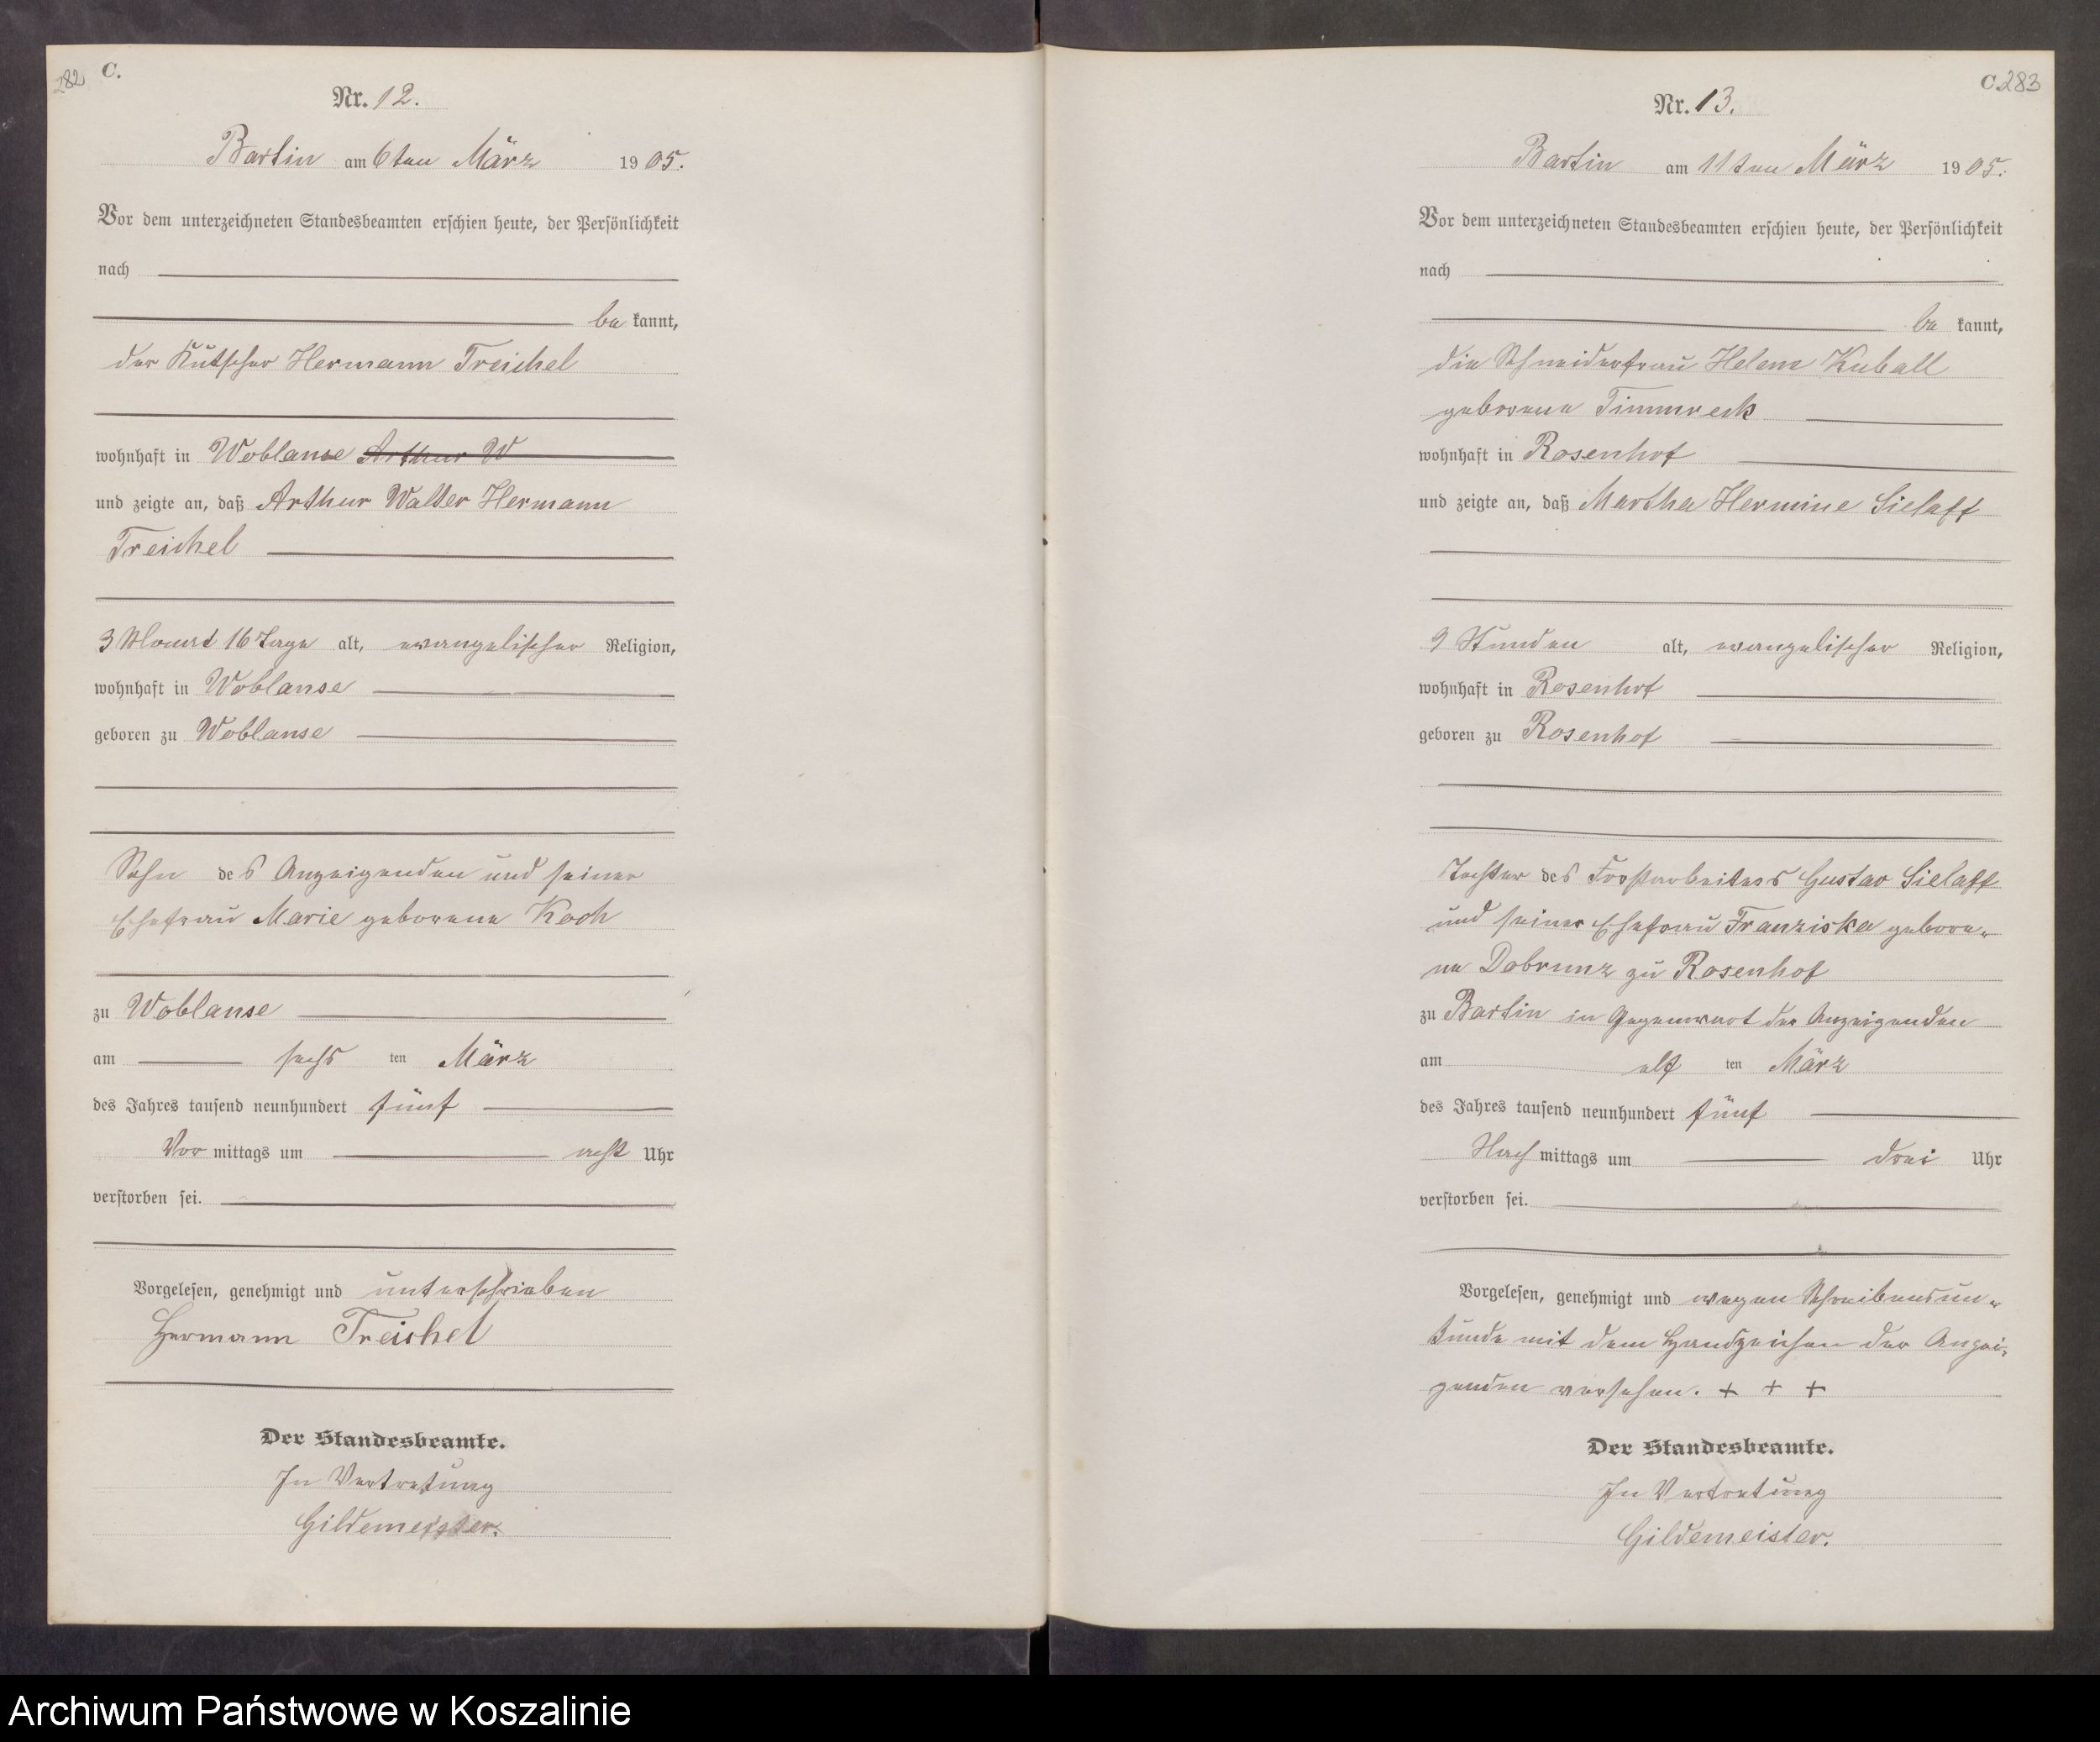 282
C.
Nr. 12.
Bartin am 6ten März 1905.
Vor dem unterzeichneten Standesbeamten erschien heute, der Persönlichkeit
nach
be kannt,
der Kutscher Hermann Treichel
wohnhaft in Woblanse Arthur W
und zeigte an, daß Arthur Walter Hermann
Treichel
3 Monat 16 Tage alt, evangelischer Religion,
wohnhaft in Woblanse
geboren zu Woblanse
Sohn des Anzeigenden und seiner
Ehefrau Marie geborene Koch
zu Woblanse
am sechs ten März
des Jahres tausend neunhundert fünf
Vor mittags um acht Uhr
verstorben sei.
Vorgelesen, genehmigt und unterschrieben
Hermann Treichel
Der Standesbeamte.
In Vertretung
Gildemeister.
C. 283
Nr. 13.
Bartin am 11ten März 1905.
Vor dem unterzeichneten Standesbeamten erschien heute, der Persönlichkeit
nach
be kannt,
die Schneiderfrau Helene Kuball
geborene Timmreck
wohnhaft in Rosenhof
und zeigte an, daß Martha Hermine Sielaff
9 Stunden alt, evangelischer Religion,
wohnhaft in Rosenhof
geboren zu Rosenhof
Tochter des Forstarbeiters Gustav Sielaff
und seiner Ehefrau Franziska gebore-
ne Dobrunz zu Rosenhof
zu Bartin in Gegenwart der Anzeigenden
am elf ten März
des Jahres tausend neunhundert fünf
Nach mittags um drei Uhr
verstorben sei.
Vorgelesen, genehmigt und wegen Schreibensun-
kunde mit dem Handzeichen der Anzei-
genden versehen. + + +
Der Standesbeamte.
In Vertretung
Gildemeister.
Archiwum Państwowe w Koszalinie